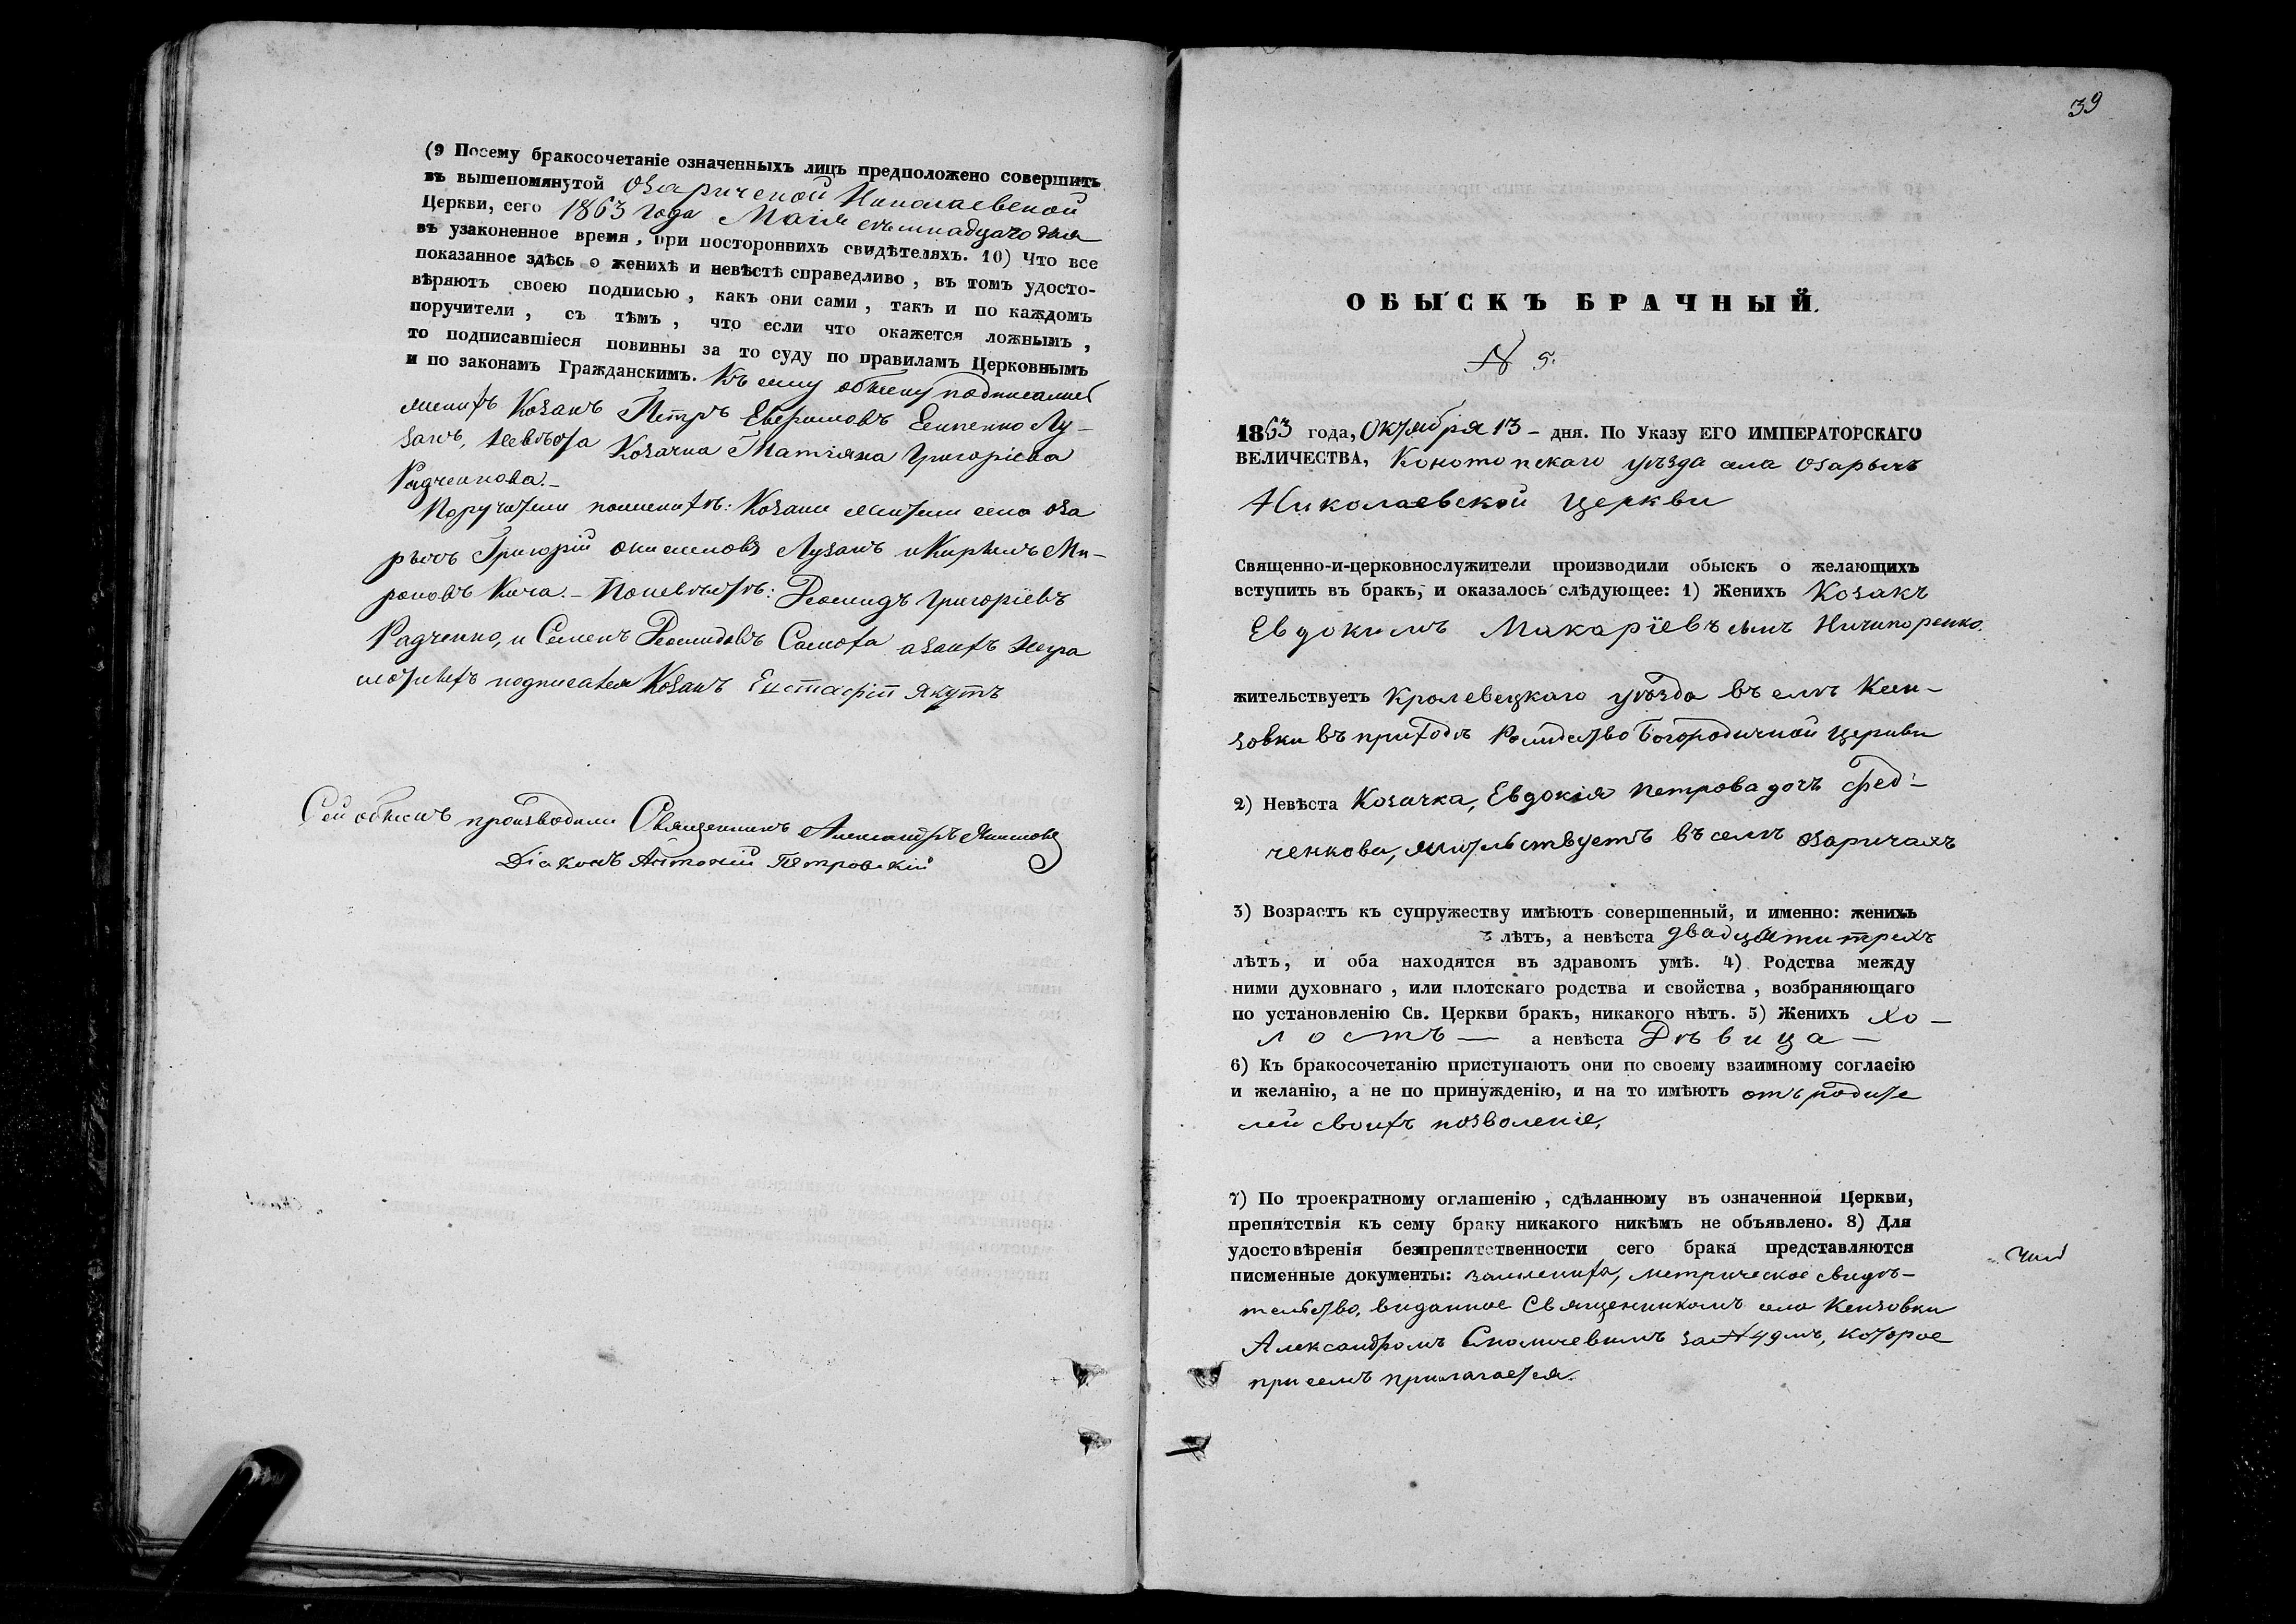 (9 Посему бракосочетаніе означенныхъ лицъ предположено совершить
въ вышепомянутой Озаричской Николаевской
Церкви, сего 1863 года Маія дня
въ узаконенное время, при постороннихъ свидѣтеляхъ. 10) Что все
показанное здѣсь о женихѣ и невѣстѣ справедливо, въ томъ удосто-
вѣряютъ своею подписью, какъ они сами, такъ и по каждомъ
поручители, съ тѣмъ, что если что окажется ложнымъ,
то подписавшіеся повинны за то суду по правиламъ Церковнымъ
и по законамъ Гражданскимъ. Къ сему обыску подписались
женихъ Козакъ Петръ Лу-
занъ, невѣста Козачка Татіяна Григоріева
Радченкова.–
Поручители по женихѣ: Козаки жители села Оза
рычъ Григорій Лузанъ и Кирилъ Ми-
роновъ Кача.– По невѣстѣ: Леонидъ Григоріевъ
Радченко, и Семенъ Леонидовъ а за ихъ негра
мотныхъ подписался Козакъ Евстафій Якутъ
Сей обыскъ производили Священникъ Александръ
Діаконъ Антоній Петровскій
39
ОБЫСКЪ БРАЧНЫЙ.
N 5.
1863 года, Октября 13 – дня. По Указу ЕГО ИМПЕРАТОРСКАГО
ВЕЛИЧЕСТВА, Конотопскаго уѣзда села Озарычъ
Николаевской Церкви
Священно-и-церковнослужители производили обыскъ о желающихъ
вступить въ бракъ, и оказалось слѣдующее: 1) Женихъ Козакъ
Евдокимъ Макаріевъ сынъ Ничипоренко.
жительствуетъ Кролевецкаго уѣзда въ селѣ Кен-
зовки въ приходѣ Рождество Богородичной Церкви
2) Невѣста Козачка, Евдокія Петрова дочь Фед-
ченкова, жительствуетъ въ селѣ Озаричахъ
3) Возрастъ къ супружеству имѣютъ совершенный, и именно: женихъ
лѣтъ, а невѣста двадцати трехъ
лѣтъ, и оба находятся въ здравомъ умѣ. 4) Родства между
ними духовнаго, или плотскаго родства и свойства, возбраняющаго
по установленію Св. Церкви бракъ, никакого нѣтъ. 5) Женихъ хо–
лостъ — а невѣста Дѣвица –
6) Къ бракосочетанію приступаютъ они по своему взаимному согласію
и желанію, а не по принужденію, и на то имѣютъ отъ родите
лей своихъ позволеніе,
7) По троекратному оглашенію, сдѣланному въ означенной Церкви,
препятствія къ сему браку никакого никѣмъ не объявлено. 8) Для
удостовѣренія безпрепятственности сего брака представляются
писменные документы: за жениха, метрическое свидѣ–
тельство, виданное Священникомъ села Кензовки
Александромъ за N 49мъ, которое
при семъ прилагается.